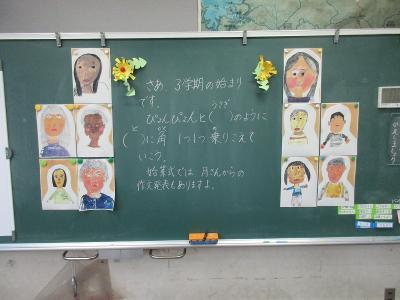 さあ、3学期の始まり
です。
うさぎ
ぴょんぴょんと(　)のように
(　)に向 1つ1つ乗りこえて
いこう。
始業式では、月さんからの
作文発表もありますよ。